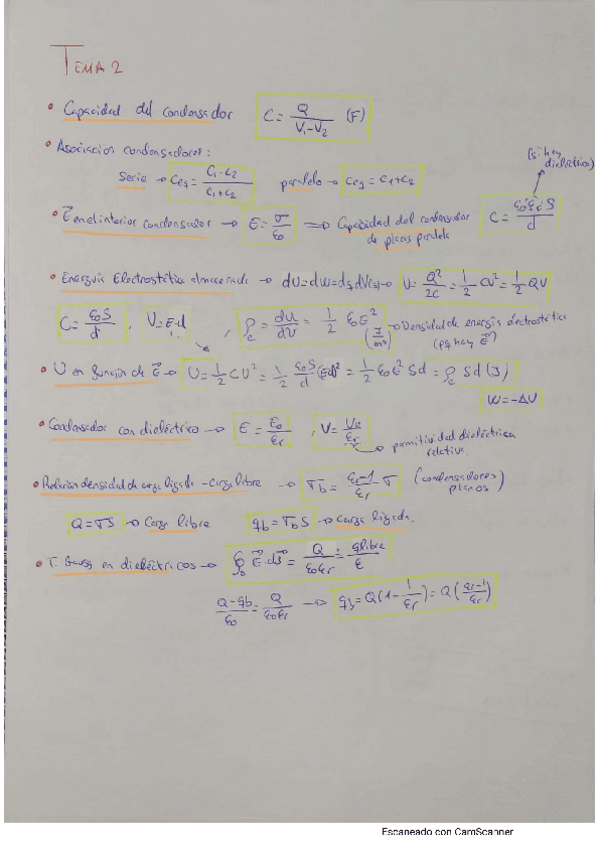 TEMA 2
• Capacidad del condensador C = Q / (V₁-V₂) (F)
• Asociación condensadores: (si hay dieléctrico)
Serie → Ceq = (C₁·C₂) / (C₁+C₂) paralelo → Ceq = C₁+C₂
• E⃗ en el interior condensador → E = σ/ε₀ ⟹ Capacidad del condensador de placas paralela C = ε₀εrS / d
• Energía Electrostática almacenada → dU=dW=dq V → U = Q²/2C = 1/2 CV² = 1/2 QV
C = ε₀S/d , V=E·d , ρe = dU/dV = 1/2 ε₀E² (J/m³) → Densidad de energía electrostática
(pq hay E⃗)
• U en función de E⃗ → U = 1/2 CV² = 1/2 ε₀S/d (Ed)² = 1/2 ε₀E² Sd = ρe Sd (J)
W = -ΔU
• Condensador con dieléctrico → E = E₀/εr , V = V₀/εr → permitividad dieléctrica
relativa.
• Relación densidad de carga ligada - carga libre → σb = (εr-1)/εr σ (condensadores planos)
Q = σS → Carga libre qb = σb S → Carga ligada.
• T. Gauss en dieléctricos → ∮s E⃗·dS⃗ = Q/ε₀εr = qlibre/ε
(Q-qb)/ε₀ = Q/ε₀εr → qb = Q(1 - 1/εr) = Q((εr-1)/εr)
Escaneado con CamScanner